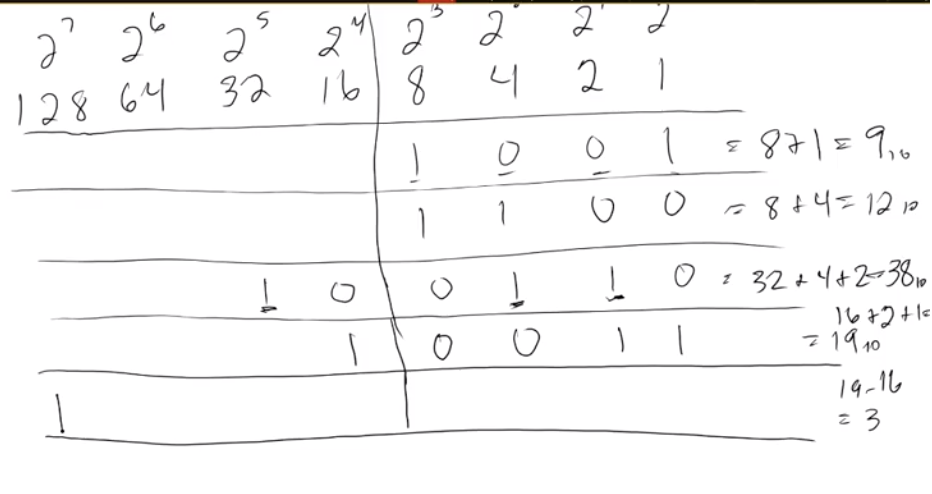 2⁷ 2⁶ 2⁵ 2⁴ 2³ 2 2 2
128 64 32 16 8 4 2 1
1 0 0 1 = 8+1 = 9₁₀
1 1 0 0 = 8+4=12₁₀
1 0 0 1 1 0 = 32+4+2=38₁₀
16+2+1=
1 0 0 1 1 = 19₁₀
19-16
1 = 3